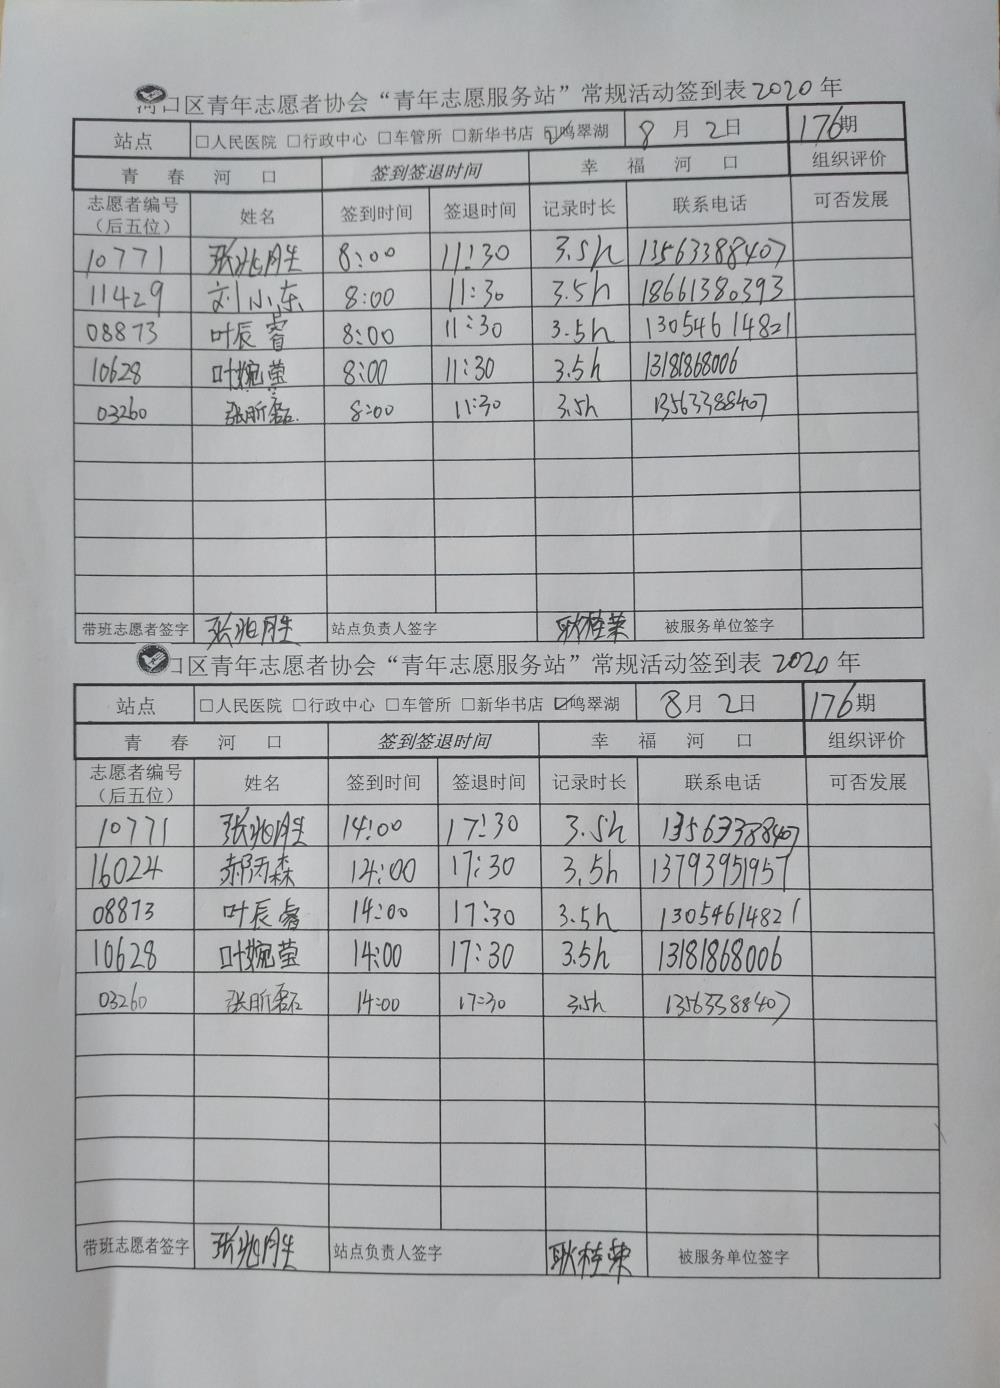 河口区青年志愿者协会“青年志愿服务站”常规活动签到表2020年
站点 □人民医院 □行政中心 □车管所 □新华书店 ☑鸣翠湖 8月2日 176期
青春河口 签到签退时间 幸福河口 组织评价
志愿者编号（后五位） 姓名 签到时间 签退时间 记录时长 联系电话 可否发展
10771 张兆胜 8:00 11:30 3.5h 13563388407
11429 刘小东 8:00 11:30 3.5h 18661380393
08873 叶辰睿 8:00 11:30 3.5h 13054614821
10628 叶婉莹 8:00 11:30 3.5h 13181868006
03260 张昕磊 8:00 11:30 3.5h 13563388407
带班志愿者签字 张兆胜 站点负责人签字 耿桂荣 被服务单位签字
口区青年志愿者协会“青年志愿服务站”常规活动签到表2020年
站点 □人民医院 □行政中心 □车管所 □新华书店 ☑鸣翠湖 8月2日 176期
青春河口 签到签退时间 幸福河口 组织评价
志愿者编号（后五位） 姓名 签到时间 签退时间 记录时长 联系电话 可否发展
10771 张兆胜 14:00 17:30 3.5h 13563388407
16024 郝丙森 14:00 17:30 3.5h 13793951957
08873 叶辰睿 14:00 17:30 3.5h 13054614821
10628 叶婉莹 14:00 17:30 3.5h 13181868006
03260 张昕磊 14:00 17:30 3.5h 13563388407
带班志愿者签字 张兆胜 站点负责人签字 耿桂荣 被服务单位签字